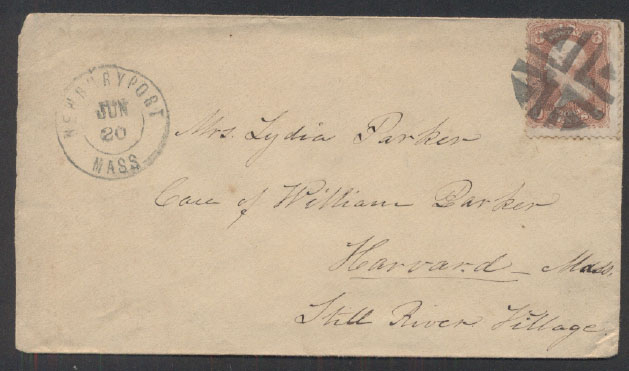 NEWBURYPORT
JUN
20
MASS
3 3
Mrs. Lydia Parker
Care of William Parker
Harvard - Mass.
Still River Village